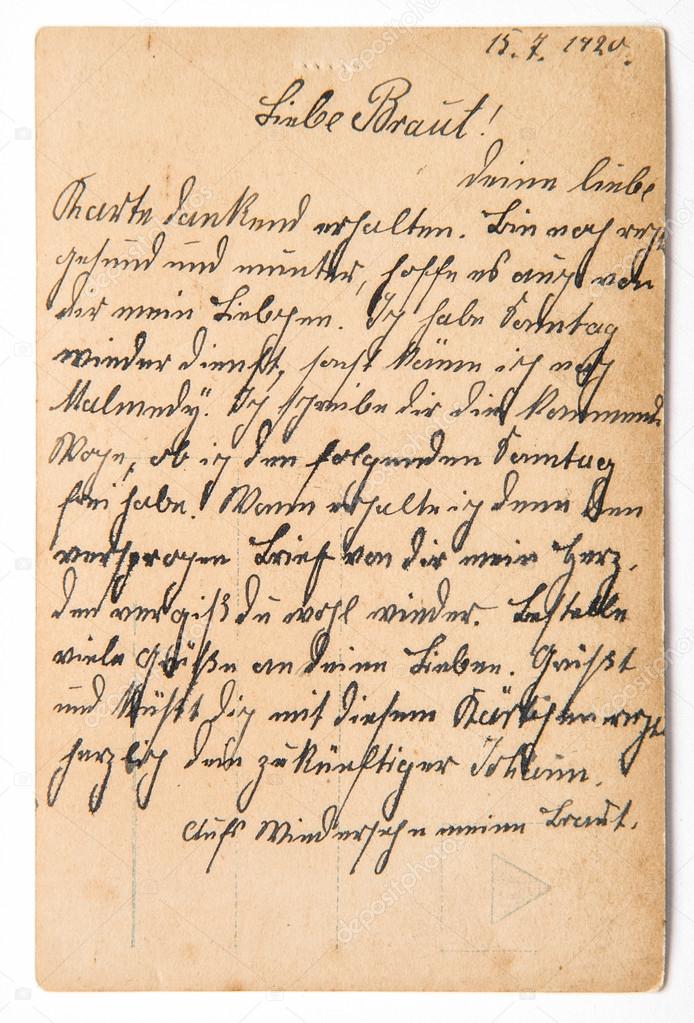 15.7.1920.
Liebe Braut!
Deine liebe
Karte dankend erhalten. Bin noch recht
gesund und munter, hoffe es auch von
dir mein Liebchen. Ich habe Sonntag
wieder dienst, sonst käme ich nach
Malmedy. Ich schreibe dir die kommende
Woche, ob ich den folgenden Sonntag
frei habe. Wann erhalte ich denn den
versprochen Brief von dir mein Herz,
den vergiß du wohl wieder. Bestelle
viele Grüße an deine Lieben. Grüßt
und küßt dich mit diesem Kärtchen recht
herzlich dein zukünftiger Johann.
Aufs Wiedersehn meine Braut.